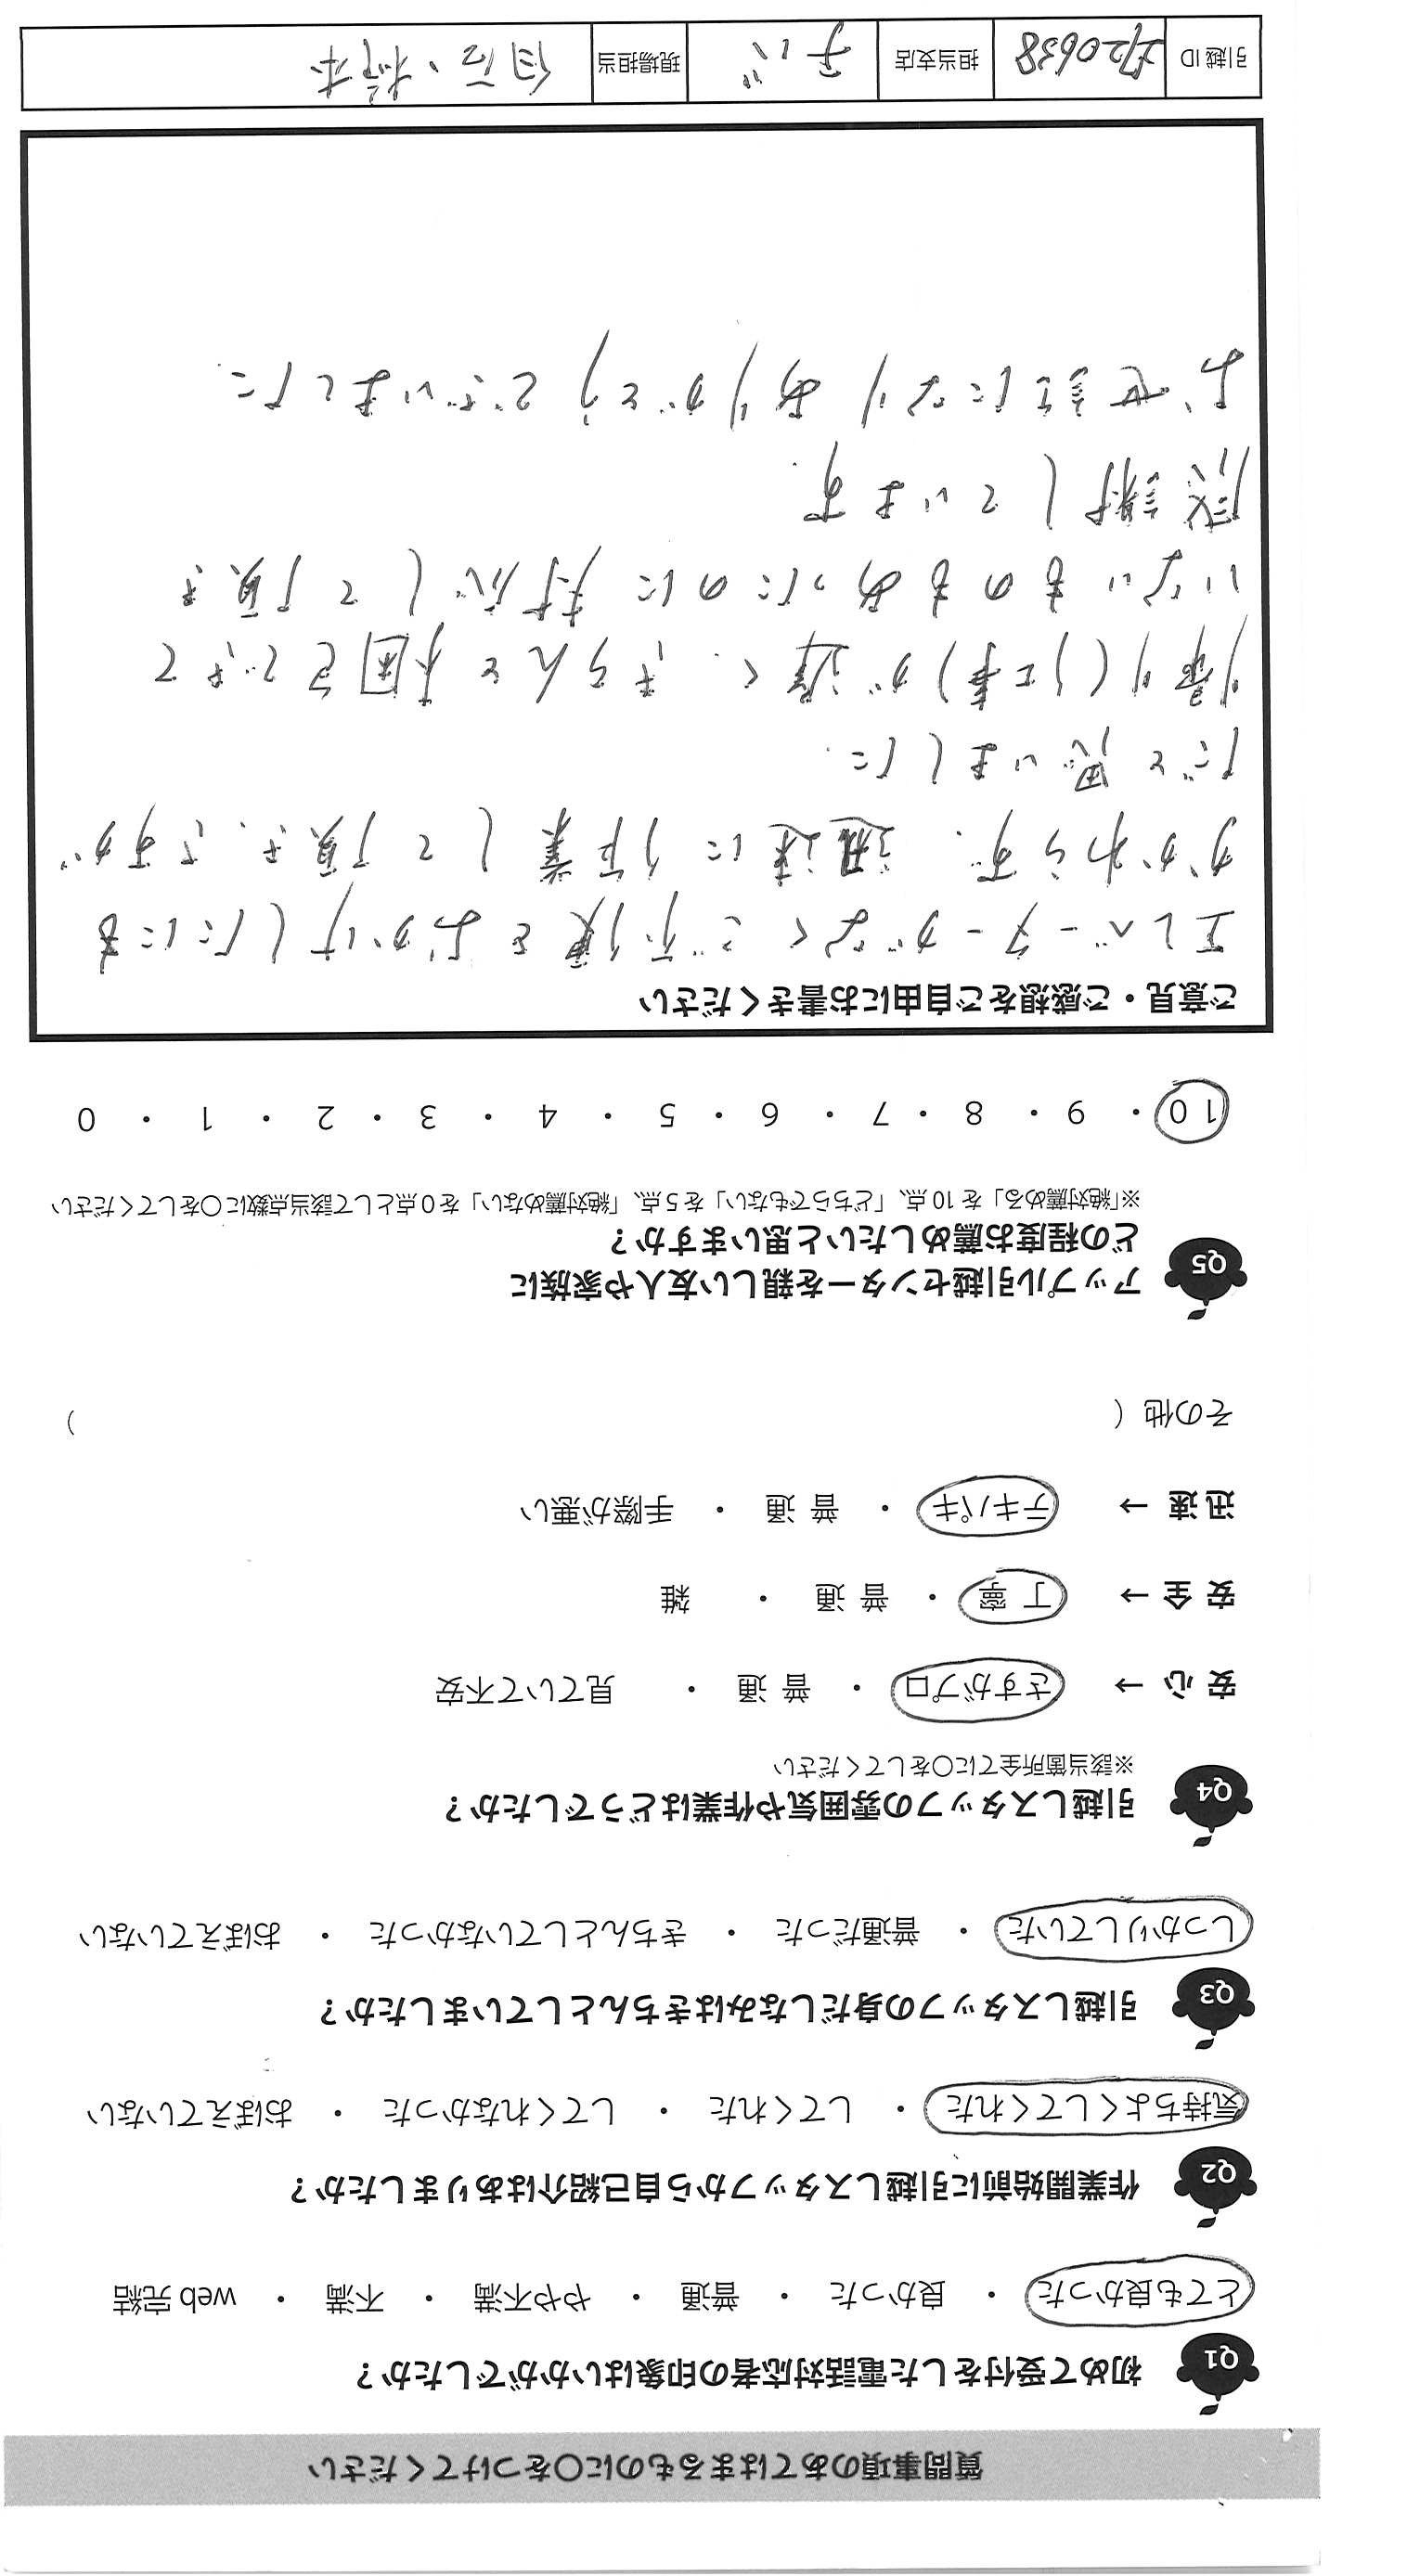 質問事項のあてはまるものに○をつけてください
Q1 初めて受付をした電話対応者の印象はいかがでしたか？
とても良かった ・ 良かった ・ 普通 ・ やや不満 ・ 不満 ・ web 完結
Q2 作業開始前に引越しスタッフから自己紹介はありましたか？
気持ちよくしてくれた ・ してくれた ・ してくれなかった ・ おぼえていない
Q3 引越しスタッフの身だしなみはきちんとしていましたか？
しっかりしていた ・ 普通だった ・ きちんとしていなかった ・ おぼえていない
Q4 引越しスタッフの雰囲気や作業はどうでしたか？
※該当箇所全てに○をしてください
安 心 → さすがプロ ・ 普 通 ・ 見ていて不安
安 全 → 丁 寧 ・ 普 通 ・ 雑
迅 速 → テキパキ ・ 普 通 ・ 手際が悪い
その他（ ）
Q5 アップル引越センターを親しい友人や家族に
どの程度お薦めしたいと思いますか？
※「絶対薦める」を 10 点、「どちらでもない」を 5 点、「絶対薦めない」を 0 点として該当点数に○をしてください
10 ・ 9 ・ 8 ・ 7 ・ 6 ・ 5 ・ 4 ・ 3 ・ 2 ・ 1 ・ 0
ご意見・ご感想をご自由にお書きください
エレベーターがなくご不便をおかけしたにも
かかわらず、迅速に作業して頂き、さすが
だと思いました。
(リ工事)が遅く、きちんと梱包できて
いないものもあったのに対応して頂き
感謝しています。
お世話になりありがとうございました。
引越 ID 20638 担当支店 チバ 現場担当